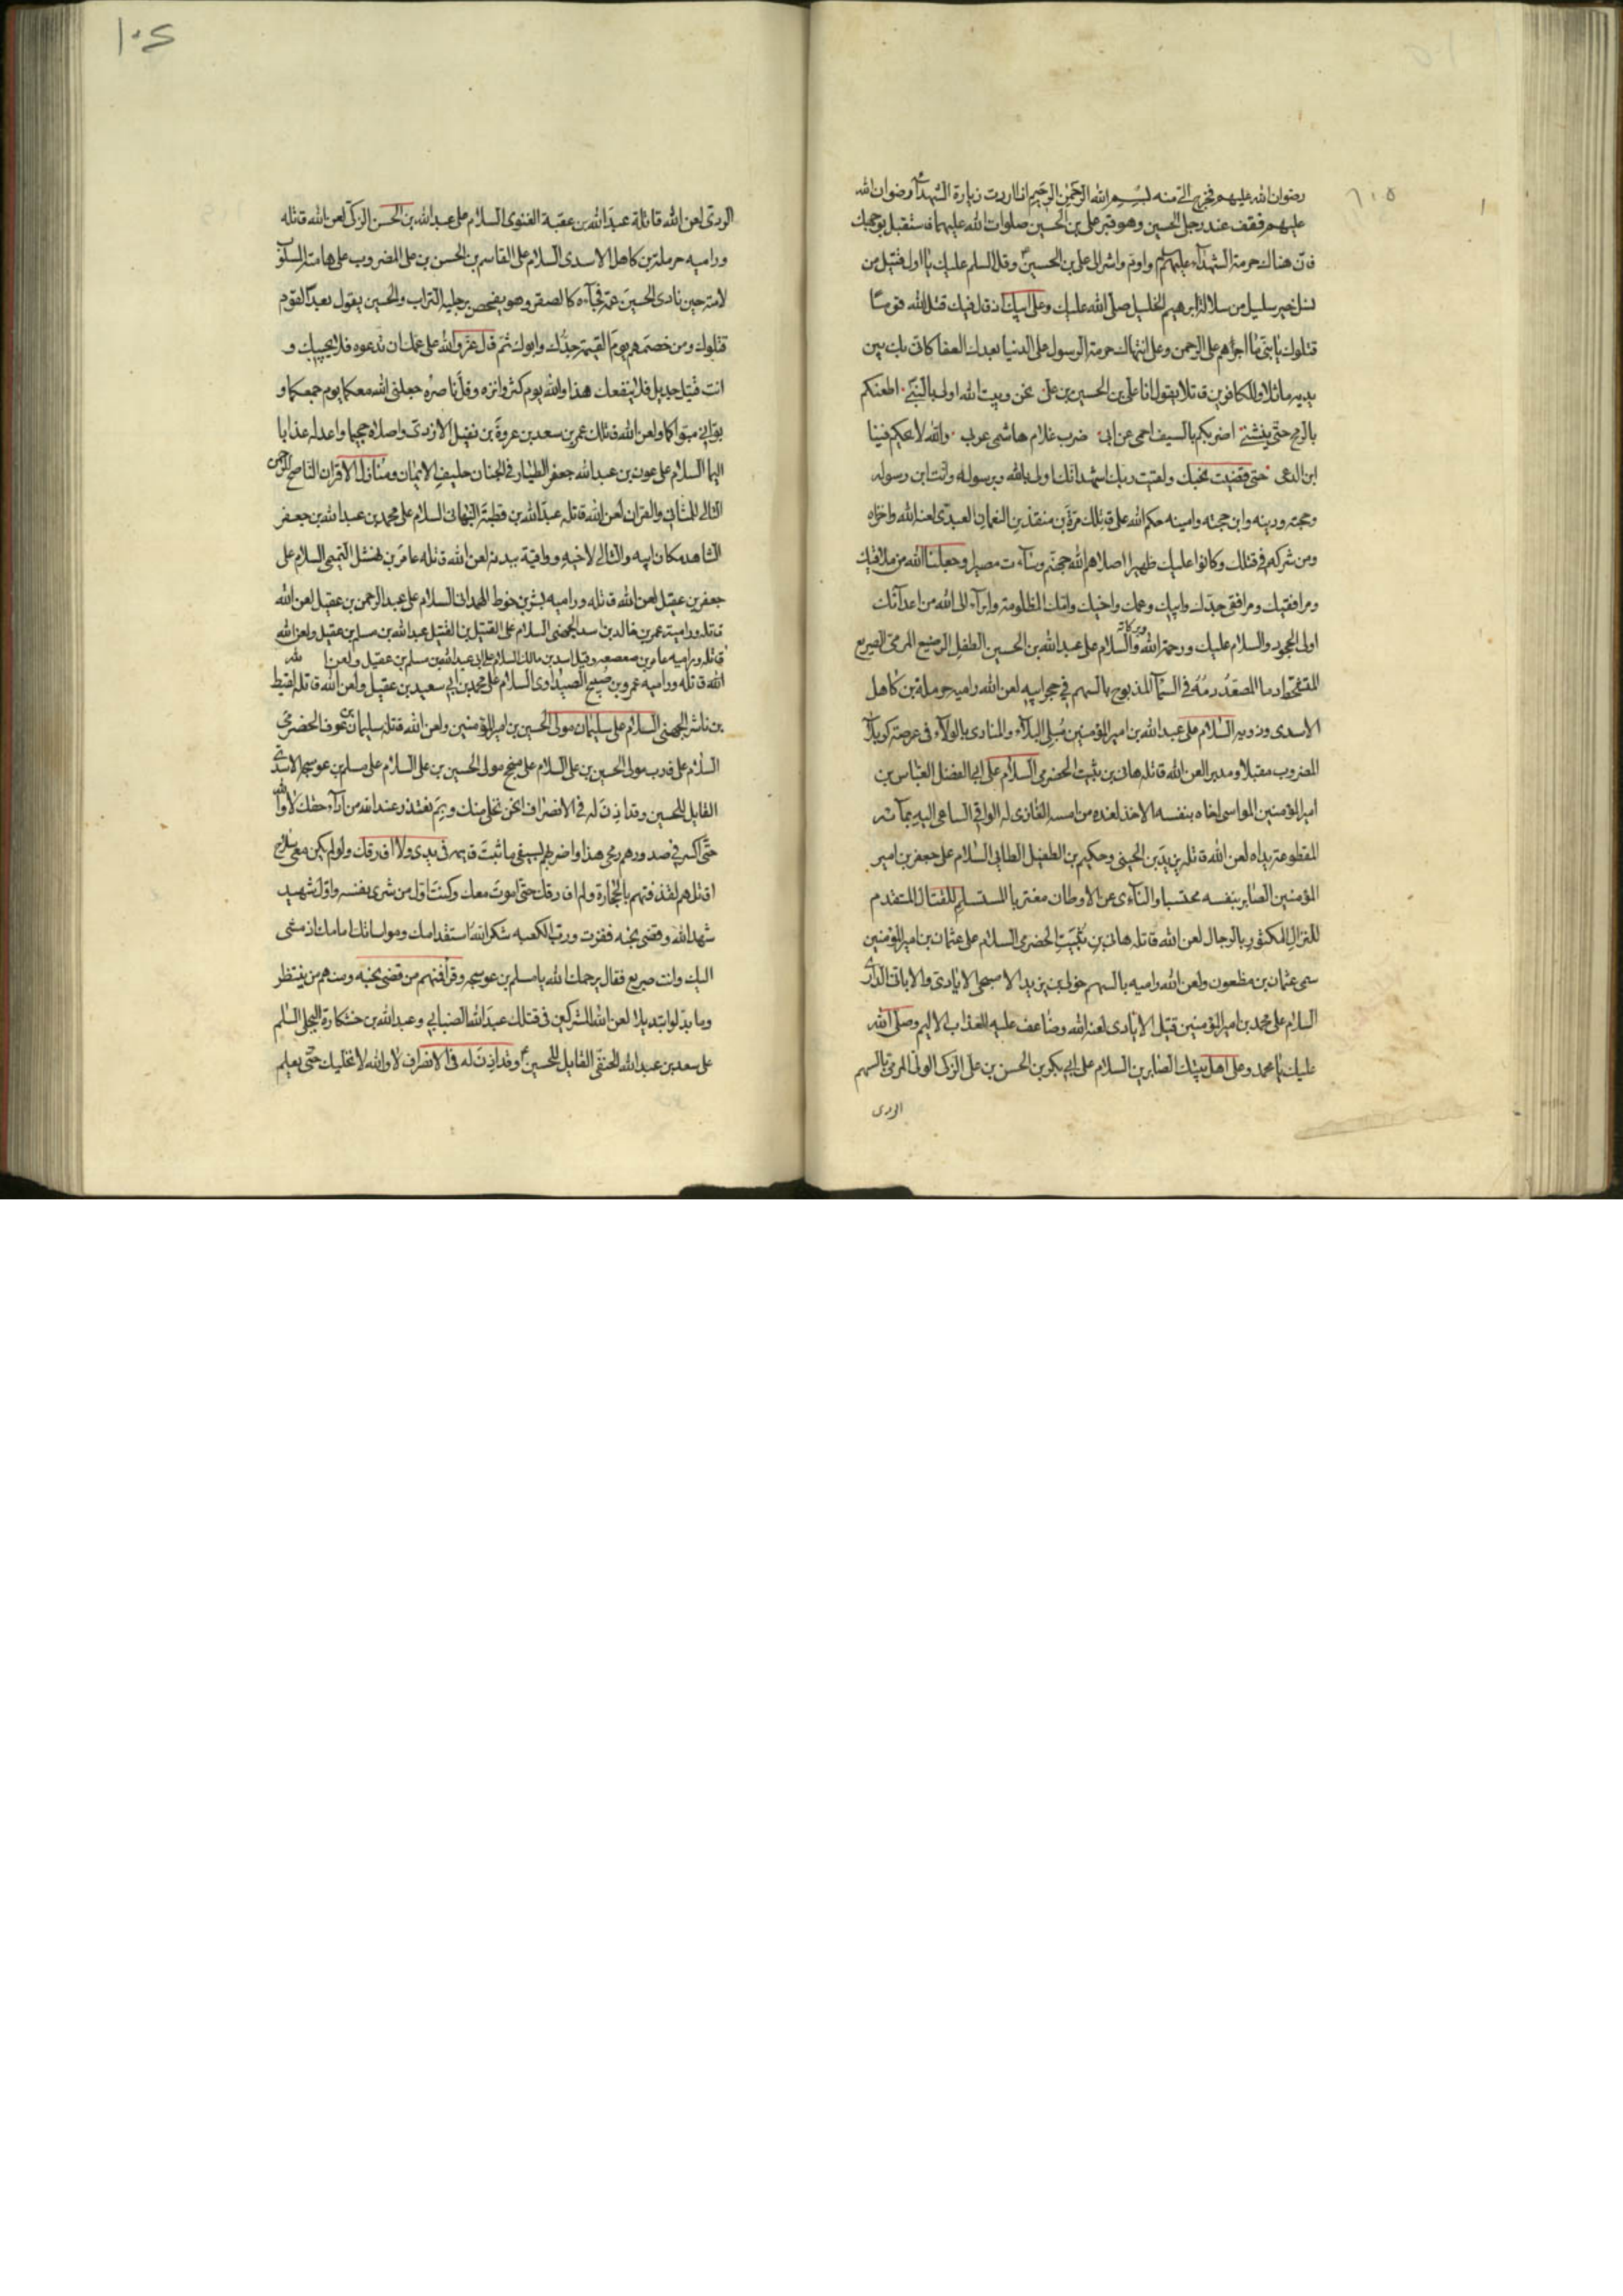 ٦١٥
رضوان الله عليهم فخرج الىّ منه بسم الله الرحمن الرحيم اذا اردت زيارة الشهدآء رضوان الله
عليهم فقف عند رجلى الحسين وهو قبر على بن الحسين صلوات الله عليهما فاستقبل بوجهك
فان هناك حومة الشهدآء عليهم السلم واوم واشر الى على بن الحسين وقل السلم عليك يا اول قتيل من
نسل خير سليل من سلالة ابرهيم الخليل صلى الله عليك وعلى ابيك اذ قال فيك قتل الله قوما
قتلوك يا بنىّ ما اجراهم على الرحمن وعلى انتهاك حرمة الرسول على الدنيا بعدك العفا كانى بك بين
يديه ماثلا وللكافرين قاتلا يقول انا على بن الحسين بن على نحن وبيت الله اولى بالنبى اطعنكم
بالرمح حتى ينثنى اضربكم بالسيف احمى عن ابى ضرب غلام هاشمى عربى والله لا يحكم فينا
ابن الدعى حتى قضيت نحبك ولقيت ربك اشهد انك اولى بالله وبرسوله وانت ابن رسوله
وحجته ودينه وابن حجته وامينه حكم الله على قاتلك مرّة بن منقذ بن النعمان العبدى لعنه الله واخزاه
ومن شركه فى قتلك وكانوا عليك ظهيرا اصلاهم الله جهنم وسآءت مصيرا وجعلنا الله من ملاقيك
ومرافقيك ومرافقى جدّك وابيك وعمك واخيك وامّك المظلومة وابرآء الى الله من اعدآئك
اولى الجحود والسلام عليك ورحمة الله وبركاته والسلام على عبد الله بن الحسين الطفل الرضيع المرمىّ الصريع
المتشحّط دما المصعّد دمه فى السمآء المذبوح بالسهم فى حجر ابيه لعن الله راميه حرملة بن كاهل
الاسدى وذويه السلام على عبد الله بن امير المؤمنين مُبلى البلآء والمنادى بالولآء فى عرصة كربلآء
المضروب مقبلا ومدبرا لعن الله قاتله هانى بن ثبيت الحضرمى السلام على ابى الفضل العباس بن
امير المؤمنين المواسى اخاه بنفسه الاخذ لغده من امسه الفادى له الواقى الساعى اليه بمآئه
المقطوعة يداه لعن الله قاتله يزيد بن الحيتى وحكيم بن الطفيل الطائى السلام على جعفر بن امير
المؤمنين الصابر بنفسه محتسبا والنآءى عن الاوطان مغتربا المستسلم للقتال المستقدم
للنزال المكثور بالرجال لعن الله قاتله هانى بن ثبيت الحضرمى السلام على عثمان بن امير المؤمنين
سمى عثمان بن مظعون ولعن الله راميه بالسهم خولى بن يزيد الاصبحى الايادى والابانى الدارى
السلام على محمد بن امير المؤمنين قتيل الايادى لعنه الله وضاعف عليه العذاب الاليم وصلى الله
عليك يا محمد وعلى اهل بيتك الصابرين السلام على ابى بكر بن الحسن بن على الزكى الولى المرمى بالسهم
الردى
١٠٤
الردىّ لعن الله قاتله عبد الله بن عقبة الغنوى السلام على عبد الله بن الحسن الزكى لعن الله قاتله
وراميه حرملة بن كاهل الاسدى السلام على القاسم بن الحسن بن على المضروب على هامته المسلوب
لامته حين نادى الحسين عمّه فجآءه كالصقر وهو يفحص برجليه التراب والحسين يقول بعدًا لقوم
قتلوك ومن خصمهم يوم القيمة جدّك وابوك ثم قال عزّ والله على عمّك ان تدعوه فلا يجيبك و
انت قتيل جديل فلا ينفعك هذا والله يوم كثر واتره وقلّ ناصره جعلنى الله معكما يوم جمعكما و
بوّانى مبوّاكما ولعن الله قاتلك عمر بن سعد بن عروة بن نفيل الازدى واصلاه جحيما واعد له عذابا
اليما السلام على عون بن عبد الله جعفر الطيار فى الجنان حليف الايمان ومنازل الاقران الناصح للرحمن
التالى للمثانى والقران لعن الله قاتله عبد الله بن قطبة النبهانى السلام على محمد بن عبد الله بن جعفر
الشاهد مكان ابيه والتالى لاخيه وواقيه ببدنه لعن الله قاتله عامر بن نهشل التميمى السلام على
جعفر بن عقيل لعن الله قاتله وراميه بشر بن خوط الهمدانى السلام على عبد الرحمن بن عقيل لعن الله
قاتله وراميه عمر بن خالد بن اسد الجهنى السلام على القتيل بن القتيل عبد الله بن مسلم بن عقيل ولعن الله
قاتله وراميه عامر بن صعصعه وقيل اسد بن مالك السلام على ابى عبد الله بن مسلم بن عقيل ولعن الله
الله قاتله وراميه عمرو بن صبيح الصيداوى السلام على محمد بن ابى سعيد بن عقيل ولعن الله قاتله لقيط
بن ناشر الجهنى السلام على سليمان مولى الحسين بن امير المؤمنين ولعن الله قاتله سليمان بن عوف الحضرمى
السلام على قارب مولى الحسين بن على السلام على منجح مولى الحسين بن على السلام على مسلم بن عوسجه الاسدى
القايل للحسين وقد اذن له فى الانصراف انحن نخلى عنك وبم نعتذر عند الله من ادآء حقك لا والله
حتى اكسر فى صدورهم رمحى هذا واضربهم بسيفى ما ثبت قايمه فى يدى ولا افارقك ولو لم يكن معى سلاح
اقاتلهم لقذفتهم بالحجارة ولم افارقك حتى اموت معك وكنت اول من شرى نفسه واول شهيد
شهد الله وقضى نحبه ففزت ورب الكعبه شكر الله استقدامك ومواساتك امامك اذ مشى
اليك وانت صريع فقال يرحمك الله يا مسلم بن عوسجه وقرأ فمنهم من قضى نحبه ومنهم من ينتظر
وما بدّلوا تبديلا لعن الله المشتركين فى قتلك عبد الله الضبابى وعبد الله بن خشكارة البجلى السلم
على سعد بن عبد الله الحنفى القايل للحسين وقد اذن له فى الانصراف لا والله لا نخليك حتى يعلم